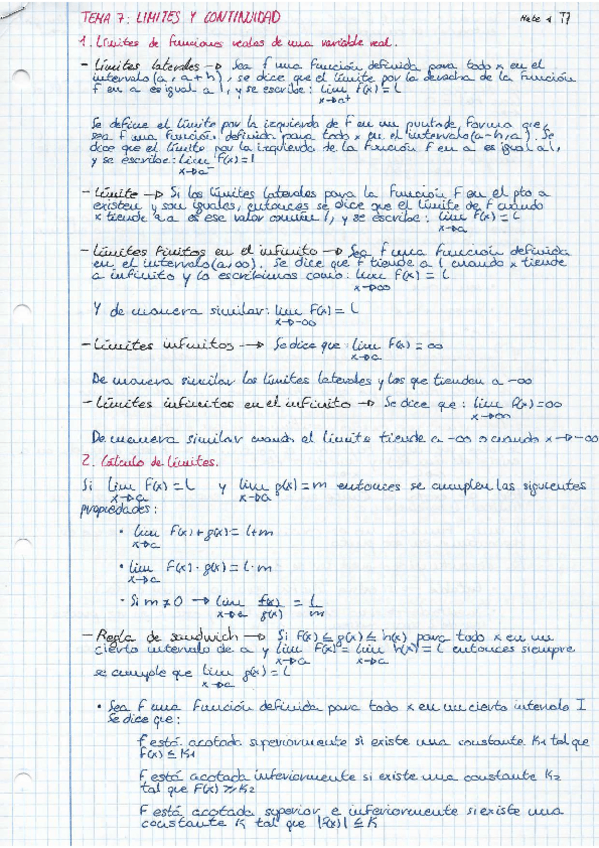 TEMA 7: LIMITES Y CONTINUIDAD
Mate 1 T7
1. Límites de funciones reales de una variable real.
- Límites laterales → Sea f una función definida para todo x en el
intervalo (a, a+h), se dice que el límite por la derecha de la función
f en a es igual a l, y se escribe: lim f(x) = l
x→a⁺
Se define el límite por la izquierda de f en un punto de forma que
sea f una función definida para todo x en el intervalo (a-h, a). Se
dice que el límite por la izquierda de la función f en a es igual a l,
y se escribe: lim f(x) = l
x→a⁻
- Límite → Si los límites laterales para la función f en el pto a
existen y son iguales, entonces se dice que el límite de f cuando
x tiende a a es ese valor común l, y se escribe: lim f(x) = l
x→a
- Límites finitos en el infinito → Sea f una función definida
en el intervalo (a, ∞). Se dice que f tiende a l cuando x tiende
a infinito y lo escribimos como: lim f(x) = l
x→∞
Y de manera similar: lim f(x) = l
x→-∞
- Límites infinitos → Se dice que lim f(x) = ∞
x→a
De manera similar los límites laterales y los que tienden a -∞
- Límites infinitos en el infinito → Se dice que: lim f(x) = ∞
x→∞
De manera similar cuando el límite tiende a -∞ o cuando x→-∞
2. Cálculo de límites.
Si lim f(x) = l y lim g(x) = m entonces se cumplen las siguientes
x→a x→a
propiedades:
• lim f(x) + g(x) = l + m
x→a
• lim f(x) · g(x) = l · m
x→a
• Si m ≠ 0 → lim f(x)/g(x) = l/m
x→a
- Regla de sandwich → Si f(x) ≤ g(x) ≤ h(x) para todo x en un
cierto intervalo de a y lim f(x) = lim h(x) = l entonces siempre
x→a x→a
se cumple que lim g(x) = l
x→a
• Sea f una función definida para todo x en un cierto intervalo I
Se dice que:
f está acotada superiormente si existe una constante K1 tal que
f(x) ≤ K1
f está acotada inferiormente si existe una constante K2
tal que f(x) ≥ K2
f está acotada superior e inferiormente si existe una
constante K tal que |f(x)| ≤ K